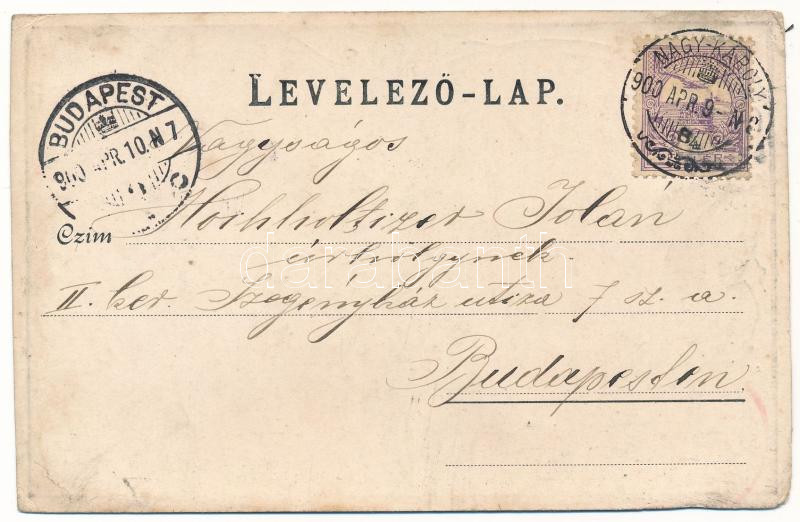 LEVELEZŐ-LAP.
BUDAPEST
900 APR. 10. N 7
NAGY-KÁROLY
900 APR. 9 - N
Nagyságos
Hochholtizer Jolán
Czim
úrhölgynek
II. ker. Szegényház utiza 7 sz. a.
Budapesten
darabanth